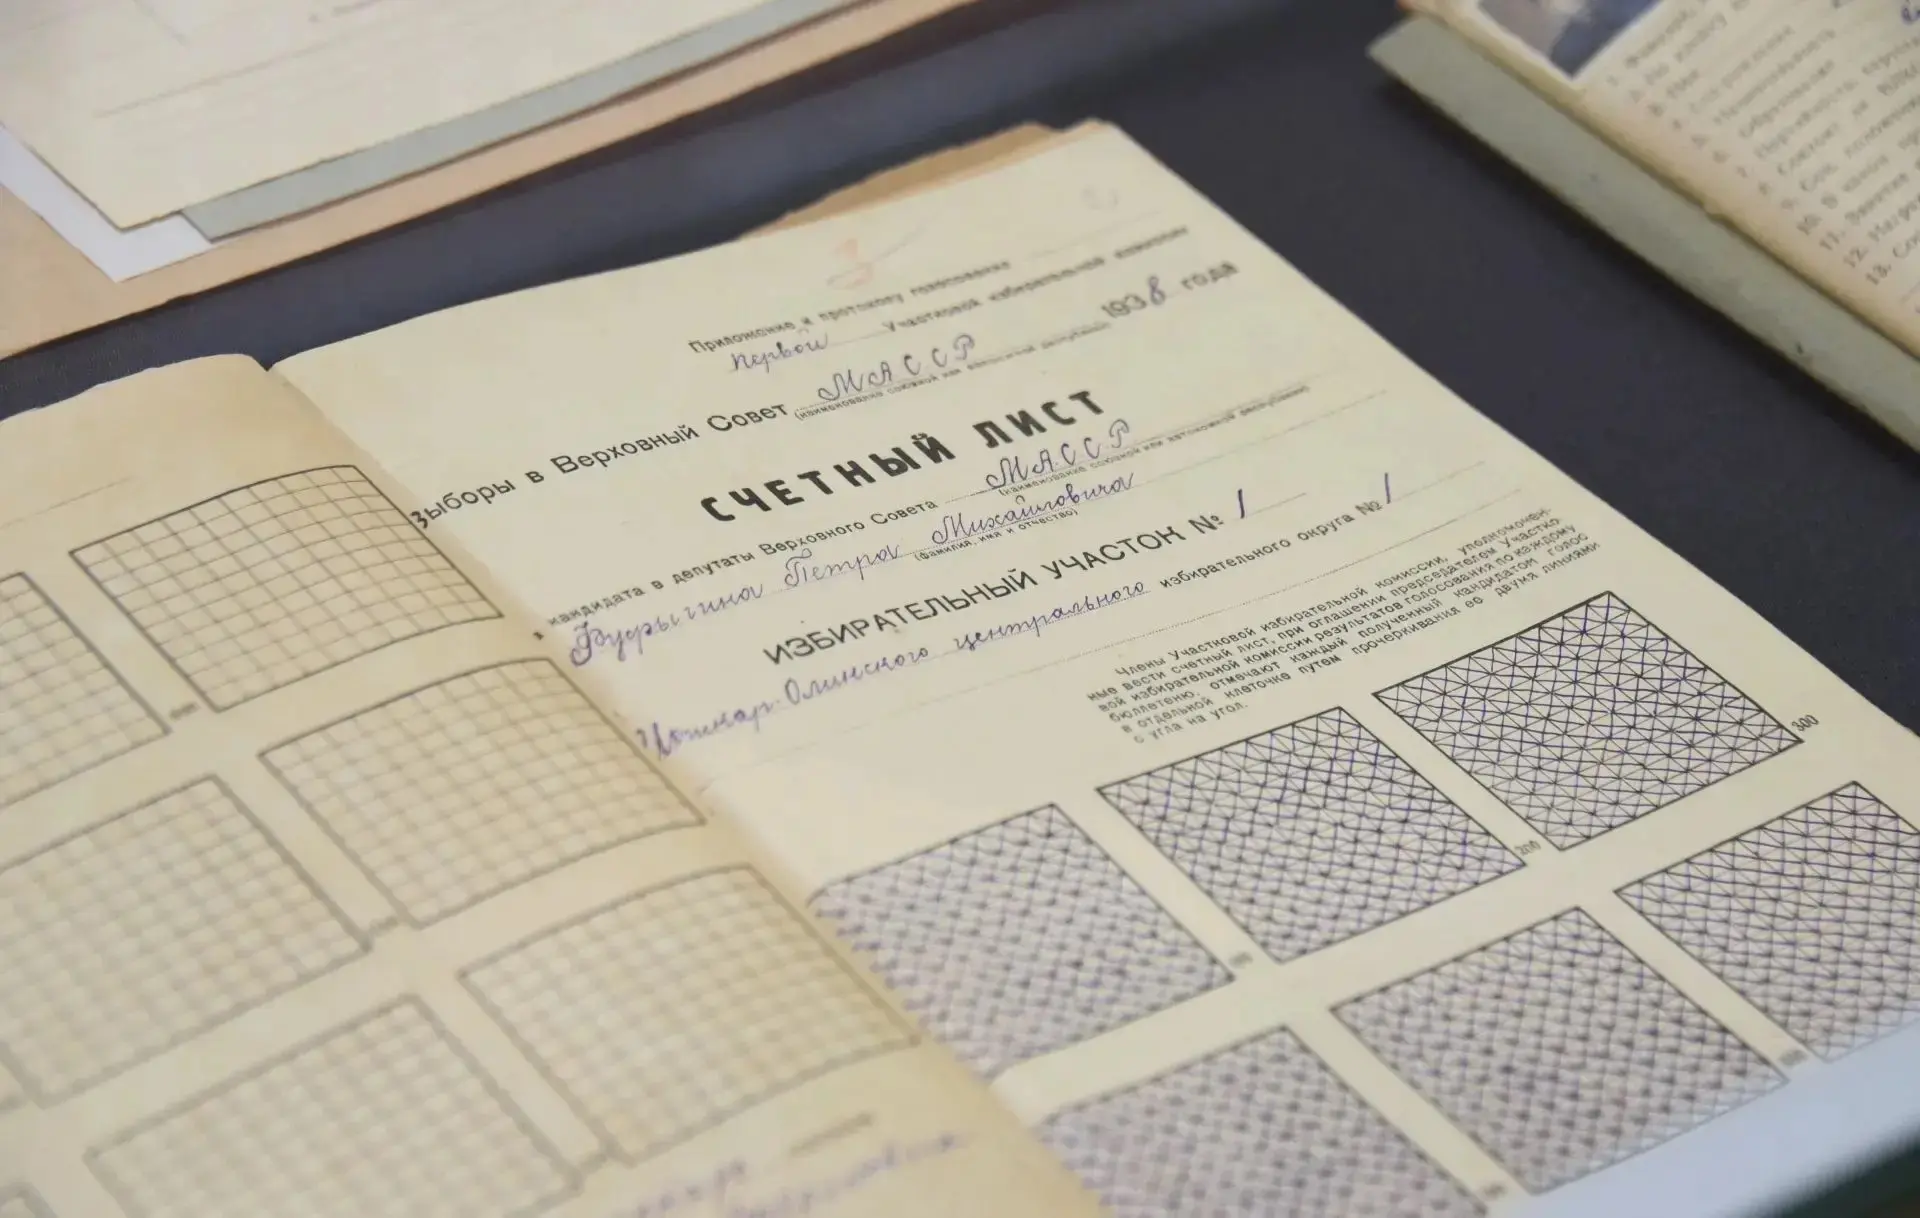 Приложение к протоколу голосования
первой Участковой избирательной комиссии
Выборы в Верховный Совет МАССР 1938 года
(наименование союзной или автономной республики)
СЧЕТНЫЙ ЛИСТ
кандидата в депутаты Верховного Совета МАССР
(наименование союзной или автономной республики)
Фурыгина Петра Михайловича
(фамилия, имя и отчество)
ИЗБИРАТЕЛЬНЫЙ УЧАСТОК № 1
Йошкар-Олинского центрального избирательного округа № 1
Члены Участковой избирательной комиссии, уполномочен-
ные вести счетный лист, при оглашении председателем Участко-
вой избирательной комиссии результатов голосования по каждому
бюллетеню, отмечают каждый полученный кандидатом голос
в отдельной клеточке путем прочеркивания ее двумя линиями
с угла на угол.
200
300
1.
2.
3.
4.
5. Национальность
6. Образование
7.
8. Состоит ли
9. Соц. положение
10. В каких
11. Занятие
12.
13.